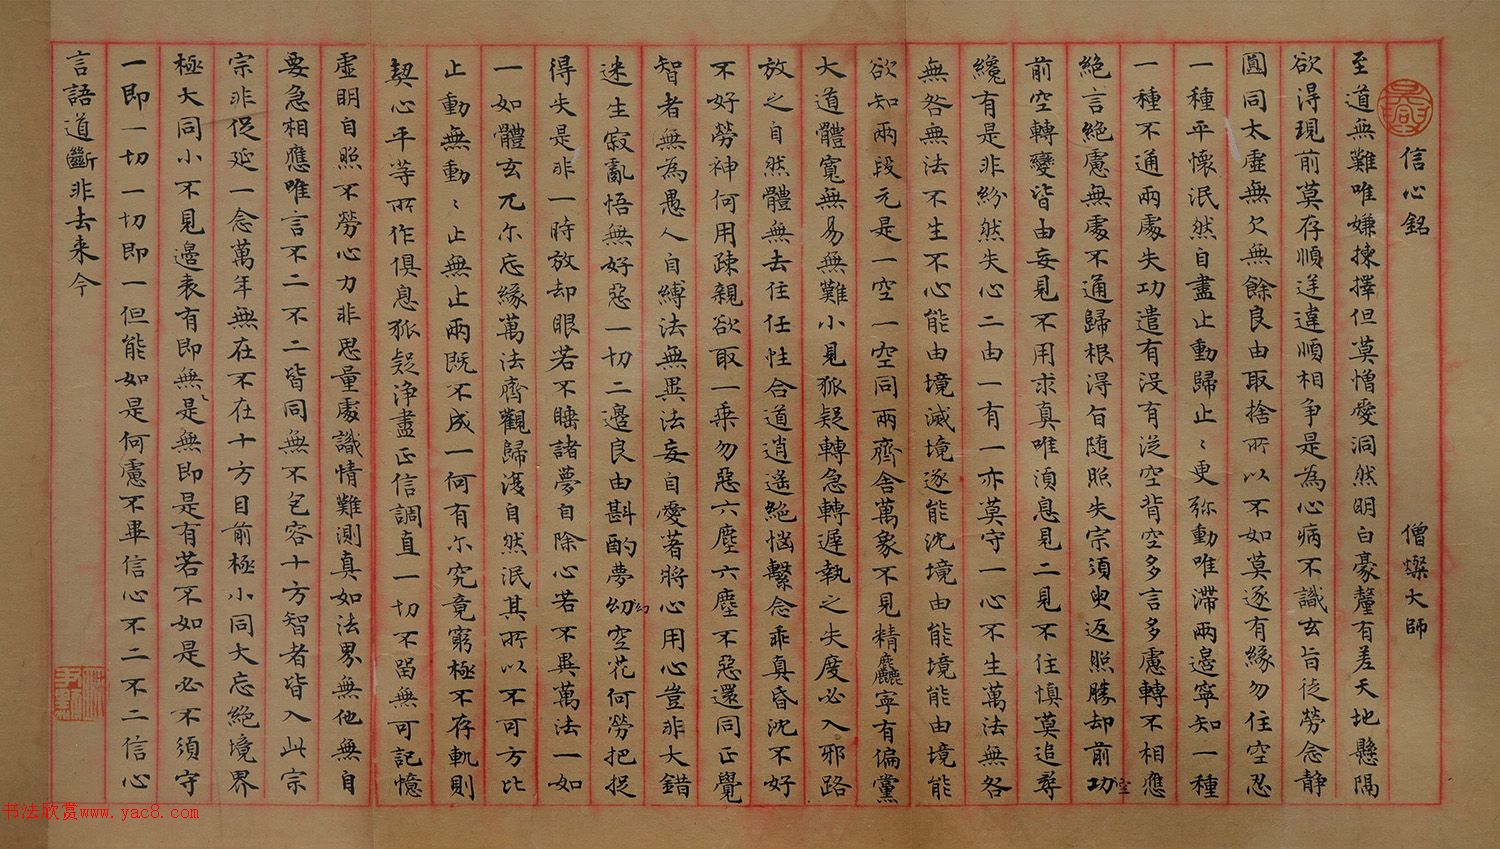 信心銘 僧燦大師
至道無難唯嫌揀擇但莫憎愛洞然明白豪釐有差天地懸隔
欲得現前莫存順逆違順相争是為心病不識玄旨徒勞念静
圓同太虛無欠無餘良由取捨所以不如莫逐有緣勿住空忍
一種平懷泯然自盡止動歸止〻更弥動唯滯兩邊寧知一種
一種不通兩處失功遣有没有從空背空多言多慮轉不相應
絶言絶慮無處不通歸根得旨随照失宗須臾返照勝却前功空
前空轉變皆由妄見不用求真唯須息見二見不住慎莫追尋
纔有是非紛然失心二由一有一亦莫守一心不生萬法無咎
無咎無法不生不心能由境滅境逐能沈境由能境能由境能
欲知兩段元是一空一空同兩齊含萬象不見精麤寧有偏黨
大道體寬無易無難小見狐疑轉急轉遲執之失度必入邪路
放之自然體無去住任性合道逍遥絶惱繫念乖真昏沈不好
不好勞神何用疎親欲取一乘勿惡六塵六塵不惡還同正覺
智者無為愚人自縛法無異法妄自愛著將心用心豈非大錯
迷生寂亂悟無好惡一切二邊良由斟酌夢幼幻空花何勞把捉
得失是非一時放却眼若不睡諸夢自除心若不異萬法一如
一如體玄兀尔忘緣萬法齊觀歸復自然泯其所以不可方比
止動無動〻止無止兩既不成一何有尔究竟窮極不存軌則
契心平等所作俱息狐疑浄盡正信調直一切不留無可記憶
虛明自照不勞心力非思量處識情難測真如法界無他無自
要急相應唯言不二不二皆同無不包容十方智者皆入此宗
宗非促延一念萬年無在不在十方目前極小同大忘絶境界
極大同小不見邊表有即無是無即是有若不如是必不須守
一即一切一切即一但能如是何慮不畢信心不二不二信心
言語道斷非去来今
书法欣赏www.yac8.com